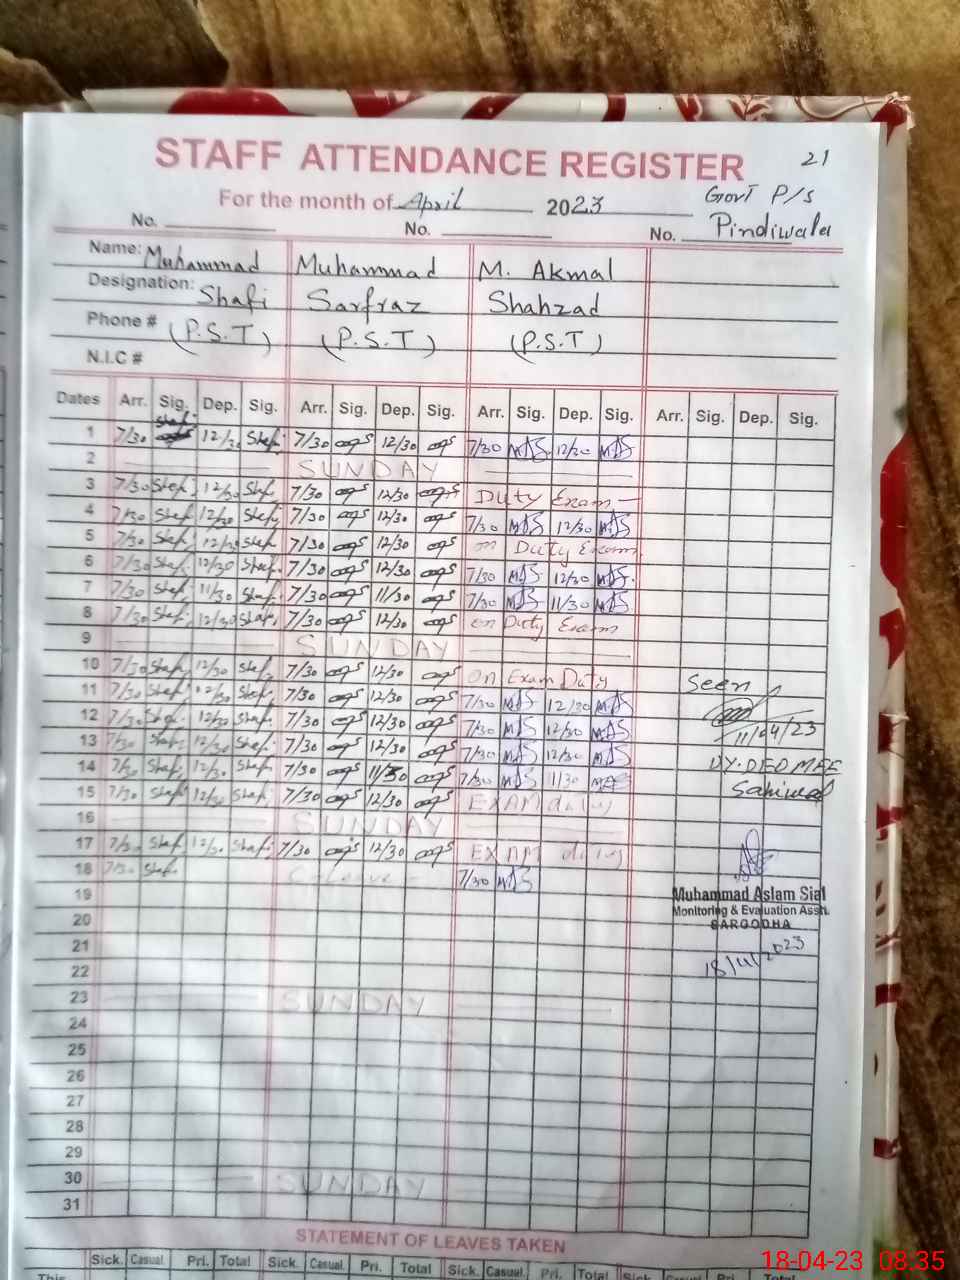 STAFF ATTENDANCE REGISTER 21
For the month of April 2023 Govt P/S
No. No. No. Pindiwala
Name: Muhammad Muhammad M. Akmal
Designation: Shafi Sarfraz Shahzad
Phone # (P.S.T) (P.S.T) (P.S.T)
N.I.C #
Dates Arr. Sig. Dep. Sig. Arr. Sig. Dep. Sig. Arr. Sig. Dep. Sig. Arr. Sig. Dep. Sig.
1 7/30 Shafi 12/30 Shafi 7/30 12/30 7/30 MAS 12/30 MAS
2 SUNDAY
3 7/30 Shafi 12/30 Shafi 7/30 12/30 Duty Exam
4 7/30 Shafi 12/30 Shafi 7/30 12/30 7/30 MAS 12/30 MAS
5 7/30 Shafi 12/30 Shafi 7/30 12/30 on Duty Exam
6 7/30 Shafi 12/30 Shafi 7/30 12/30 7/30 MAS 12/30 MAS
7 7/30 Shafi 11/30 Shafi 7/30 11/30 7/30 MAS 11/30 MAS
8 7/30 Shafi 12/30 Shafi 7/30 12/30 on Duty Exam
9 SUNDAY
10 7/30 Shafi 12/30 Shafi 7/30 12/30 On Exam Duty Seen
11 7/30 Shafi 12/30 Shafi 7/30 12/30 7/30 MAS 12/30 MAS
12 7/30 Shafi 12/30 Shafi 7/30 12/30 7/30 MAS 12/30 MAS 11/04/23
13 7/30 Shafi 12/30 Shafi 7/30 12/30 7/30 MAS 12/30 MAS DY. DEO MEE
14 7/30 Shafi 12/30 Shafi 7/30 11/30 7/30 MAS 11/30 MAS Sahiwal
15 7/30 Shafi 12/30 Shafi 7/30 12/30 EXAM duty
16 SUNDAY
17 7/30 Shafi 12/30 Shafi 7/30 12/30 EXAM duty
18 7/30 Shafi C-Leave 7/30 MAS
19 Muhammad Aslam Sial
Monitoring & Evaluation Asstt.
20 SARGODHA
21 18/4/2023
22
23 SUNDAY
24
25
26
27
28
29
30 SUNDAY
31
STATEMENT OF LEAVES TAKEN
Sick. Casual. Pri. Total Sick. Casual. Pri. Total Sick. Casual. Pri. Total Sick. Casual. Pri. Total
This
18-04-23 08:35